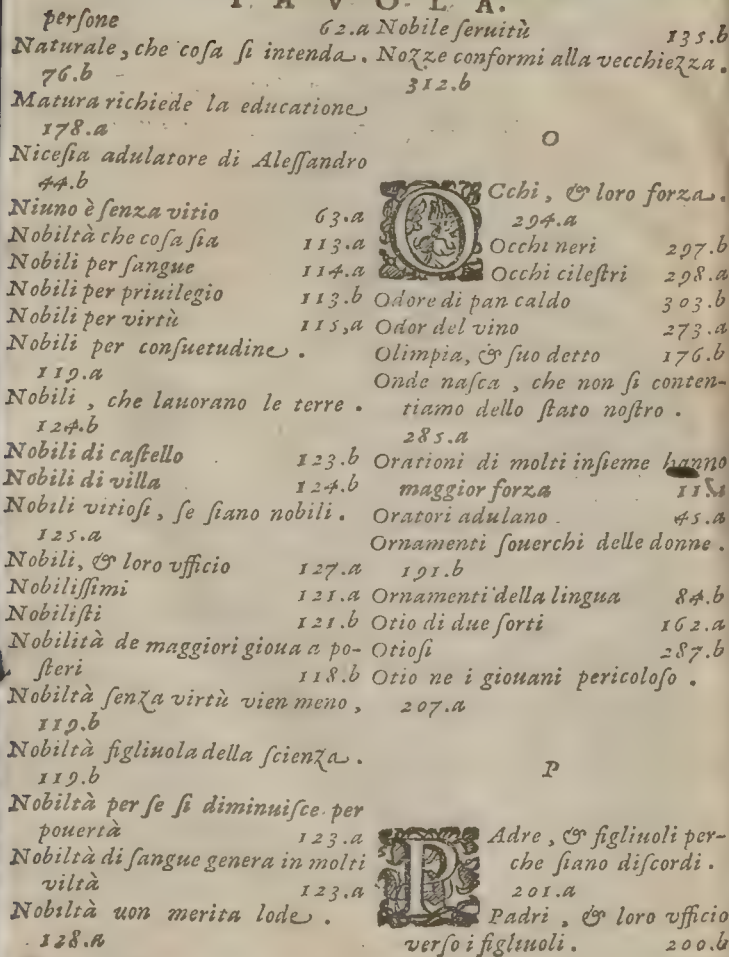 T A V O L A.
persone 62.a
Naturale, che cosa si intenda.
76.b
Matura richiede la educatione
178.a
Nicesia adulatore di Alessandro
44.b
Niuno è senza vitio 63.a
Nobiltà che cosa sia 113.a
Nobili per sangue 114.a
Nobili per priuilegio 113.b
Nobili per virtù 115,a
Nobili per consuetudine.
119.a
Nobili, che lauorano le terre.
124.b
Nobili di castello 123.b
Nobili di villa 124.b
Nobili vitiosi, se siano nobili.
125.a
Nobili, & loro vfficio 127.a
Nobilissimi 121.a
Nobilisti 121.b
Nobilità de maggiori gioua a po-
steri 118.b
Nobiltà senza virtù vien meno,
119.b
Nobiltà figliuola della scienza.
119.b
Nobiltà per se si diminuisce per
pouertà 123.a
Nobiltà di sangue genera in molti
viltà 123.a
Nobiltà uon merita lode.
128.a
Nobile seruitù 135.b
Nozze conformi alla vecchiezza.
312.b
O
OCchi, & loro forza.
294.a
Occhi neri 297.b
Occhi cilestri 298.a
Odore di pan caldo 303.b
Odor del vino 273.a
Olimpia, & suo detto 176.b
Onde nasca, che non si conten-
tiamo dello stato nostro.
285.a
Orationi di molti insieme hanno
maggior forza
Oratori adulano 45.a
Ornamenti souerchi delle donne.
191.b
Ornamenti della lingua 84.b
Otio di due sorti 162.a
Otiosi 287.b
Otio ne i giouani pericoloso.
207.a
P
PAdre, & figliuoli per-
che siano discordi.
201.a
Padri, & loro vfficio
verso i figliuoli. 200.b